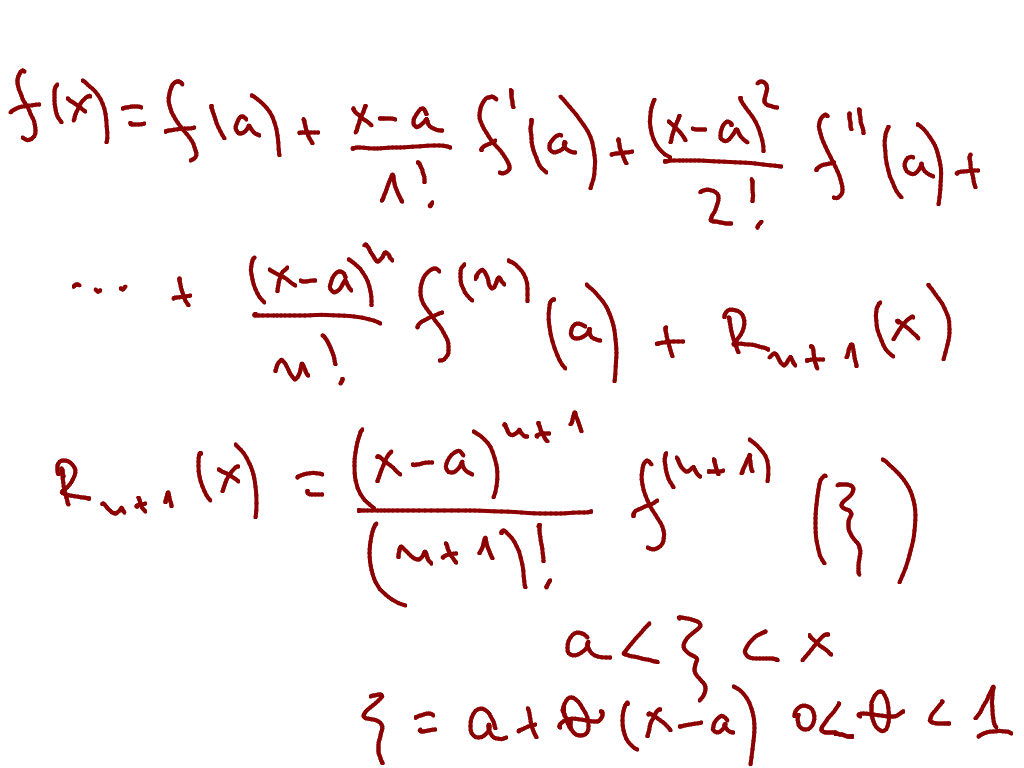 f(x) = f(a) + \frac{x-a}{1!} f'(a) + \frac{(x-a)^2}{2!} f''(a) +
... + \frac{(x-a)^n}{n!} f^{(n)}(a) + R_{n+1}(x)
R_{n+1}(x) = \frac{(x-a)^{n+1}}{(n+1)!} f^{(n+1)}(ξ)
a < ξ < x
ξ = a + θ(x-a) 0 < θ < 1